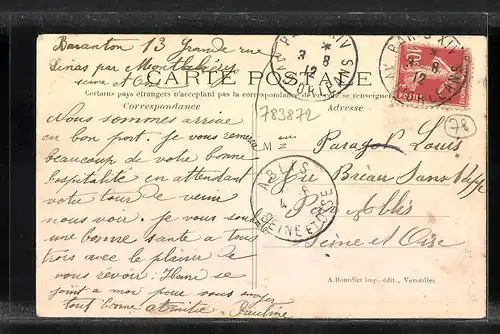 Baranton 13 Grande rue
Linas par Montlhéry
seine et Oise
CARTE POSTALE
Certains pays étrangers n'acceptant pas la correspondance
Correspondance
Adresse
783872
78
Nous sommes arrivé
en bon port. Je vous remercie
beaucoup de votre bonne
hospitalité en attendant
votre tour de venir
nous voir. Je vous
une bonne santé a tous
trois avec le plaisir de
vous revoir. se
joint a moi pour vous
tout bonne amitié Pauline
M
Louis
Par Ablis
Seine et Oise
PARIS XIV
8
12
AV. D'ORLEANS
PARIS XIV
8
12
AV. D'ORLEANS
10
POSTES
ABLIS
4 8
SEINE ET OISE
A. Bourdier imp.-édit., Versailles